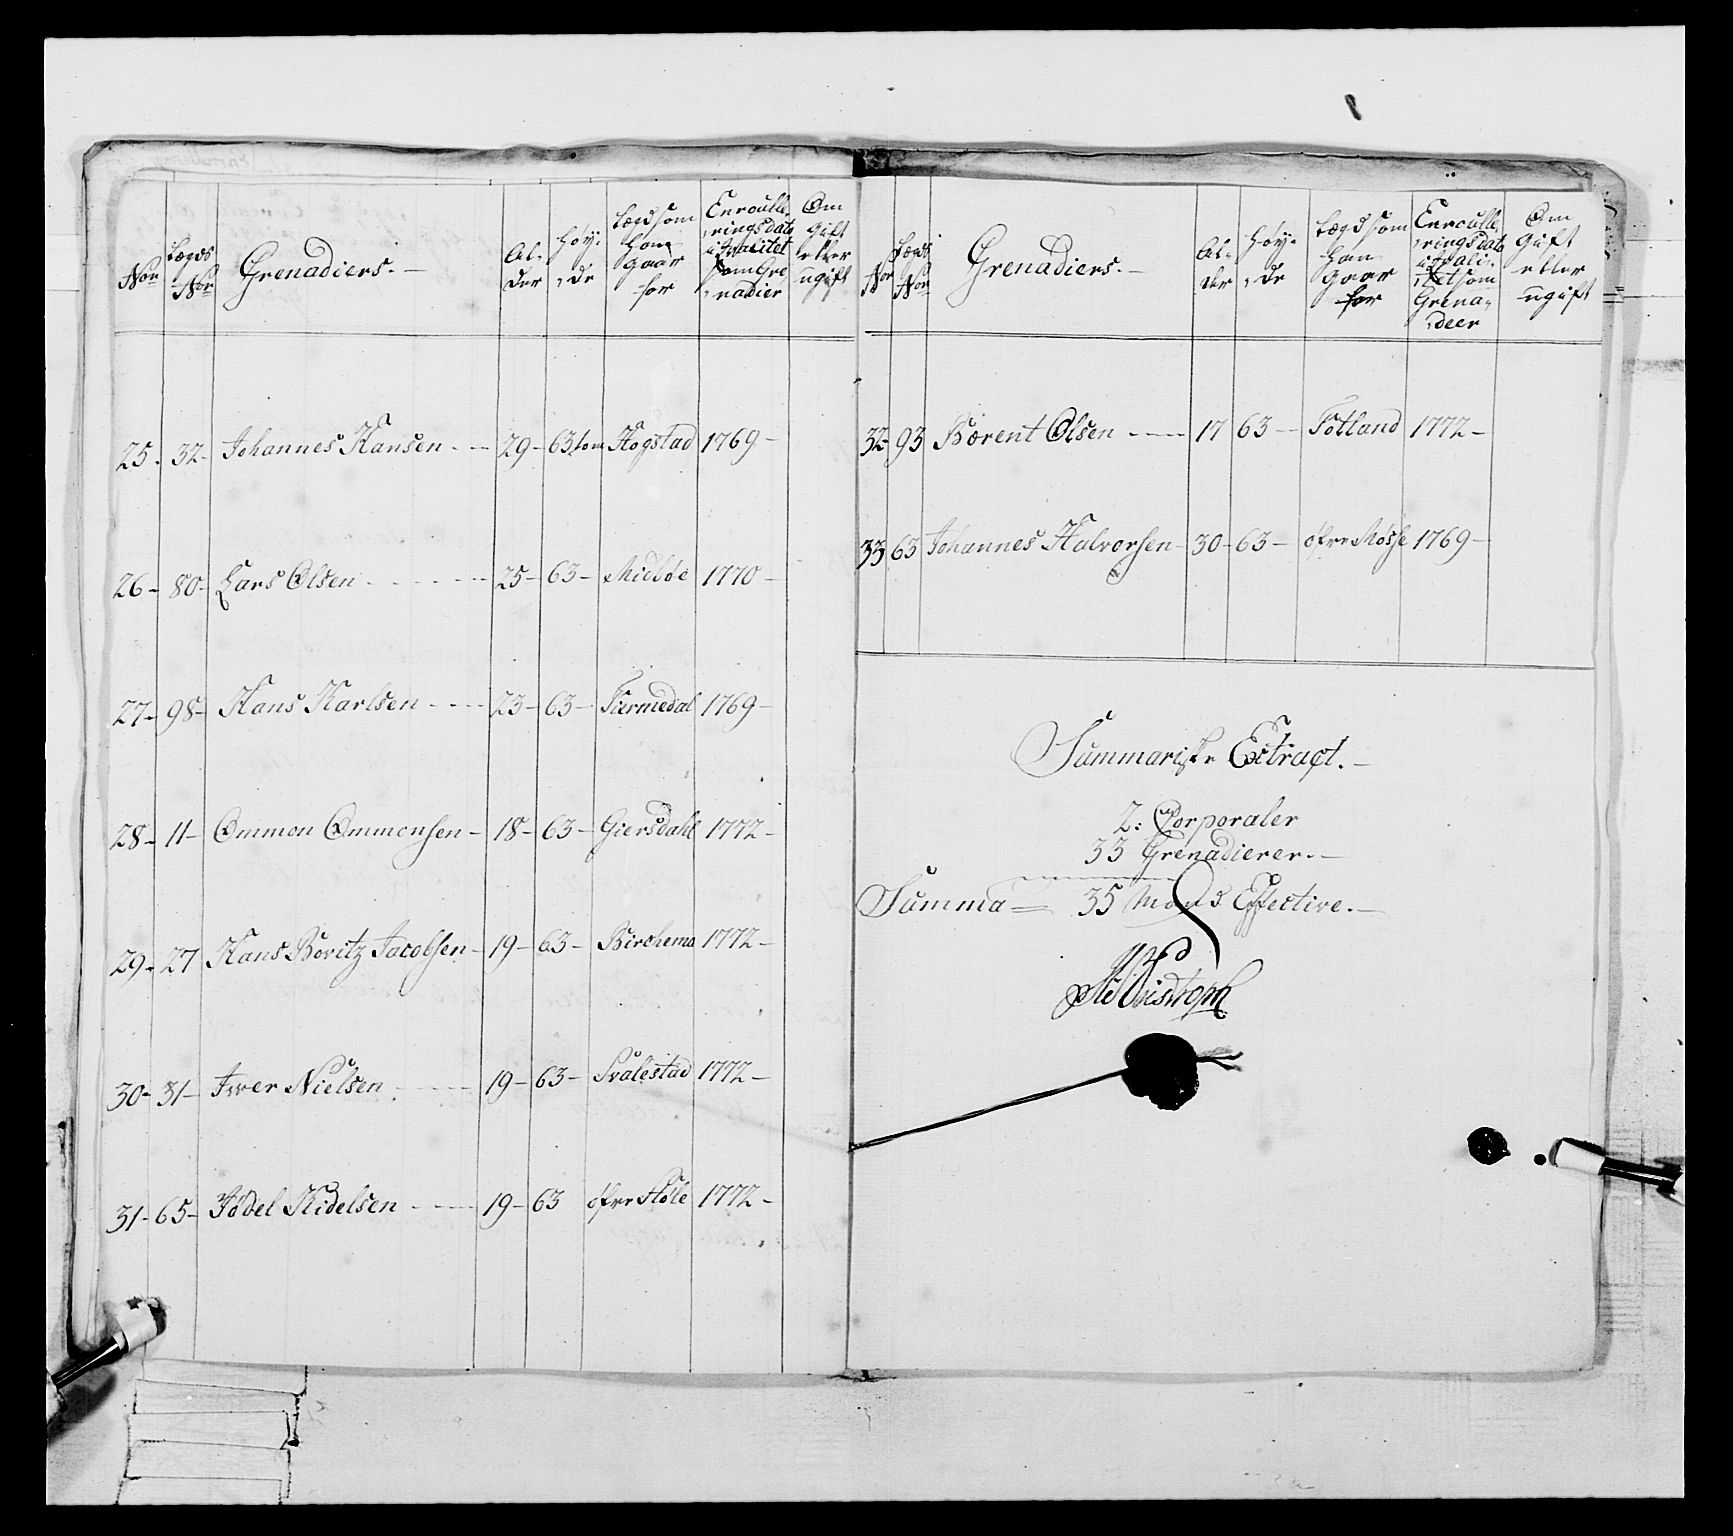 Nor
Lægds Nor
Grenadiers.
Al-
der
Høy-
de
Lægd som
han
gaar
for
Enroulle-
rings dato
i qvalitet
som Gre
nadier
Om
Gift
eller
ugift
25. 32- Johannes Hansen - 29- 63 tom Hogstad 1769-
26- 80- Lars Olsen - 25- 63- Midböe 1770-
27- 98- Hans Karlsen - 23- 63- Tiermedal 1769-
28- 11- Ommon Ommonsen - 18- 63- Giersdahl 1772-
29- 27 Hans Boritz Jacobsen - 19- 63- Birchemo 1772-
30- 31- Iver Nielsen - 19- 63- Svalestad 1772-
31- 65- Kidelsen - 19- 63 öfre 1772-
Nor
Lægds Nor
Grenadiers.
Al-
der
Høy-
de
Lægd som
han
gaar
for
Enroulle-
rings dato
i qvali-
tet som
Grena-
deer
Om
Gift
eller
ugift
32- 93 Bærent Olsen - 17 63- Fotland 1772-
33 63 Johannes Halvorsen 30- 63- öfre Mösse 1769-
Summariske Extract.
2: Corporaler
33 Grenadierer.
Summa = 35 Mand Effective.